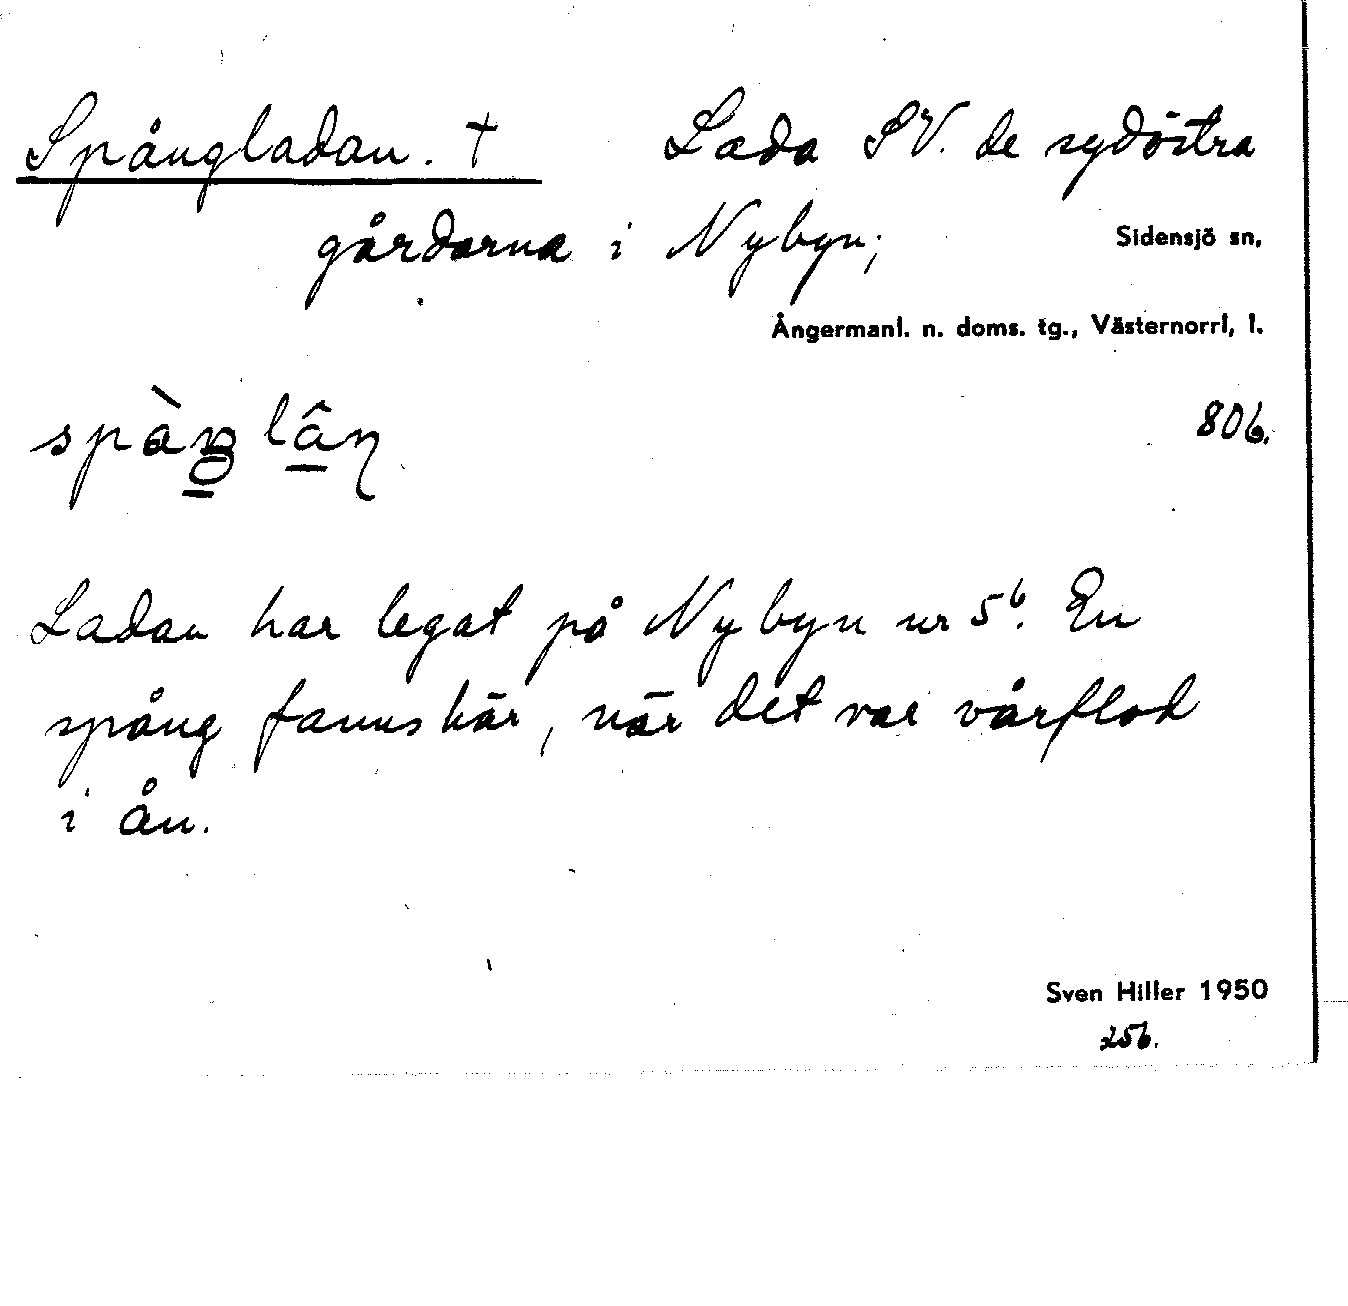 Spångladan. † Lada SV. de sydöstra
gårdarna i Nybyn; Sidensjö sn,
Ångermanl. n. doms. tg., Västernorrl, l.
806.
Ladan har legat på Nybyn nr 5⁶. En
spång fanns här, när det var vårflod
i ån.
Sven Hiller 1950
256.